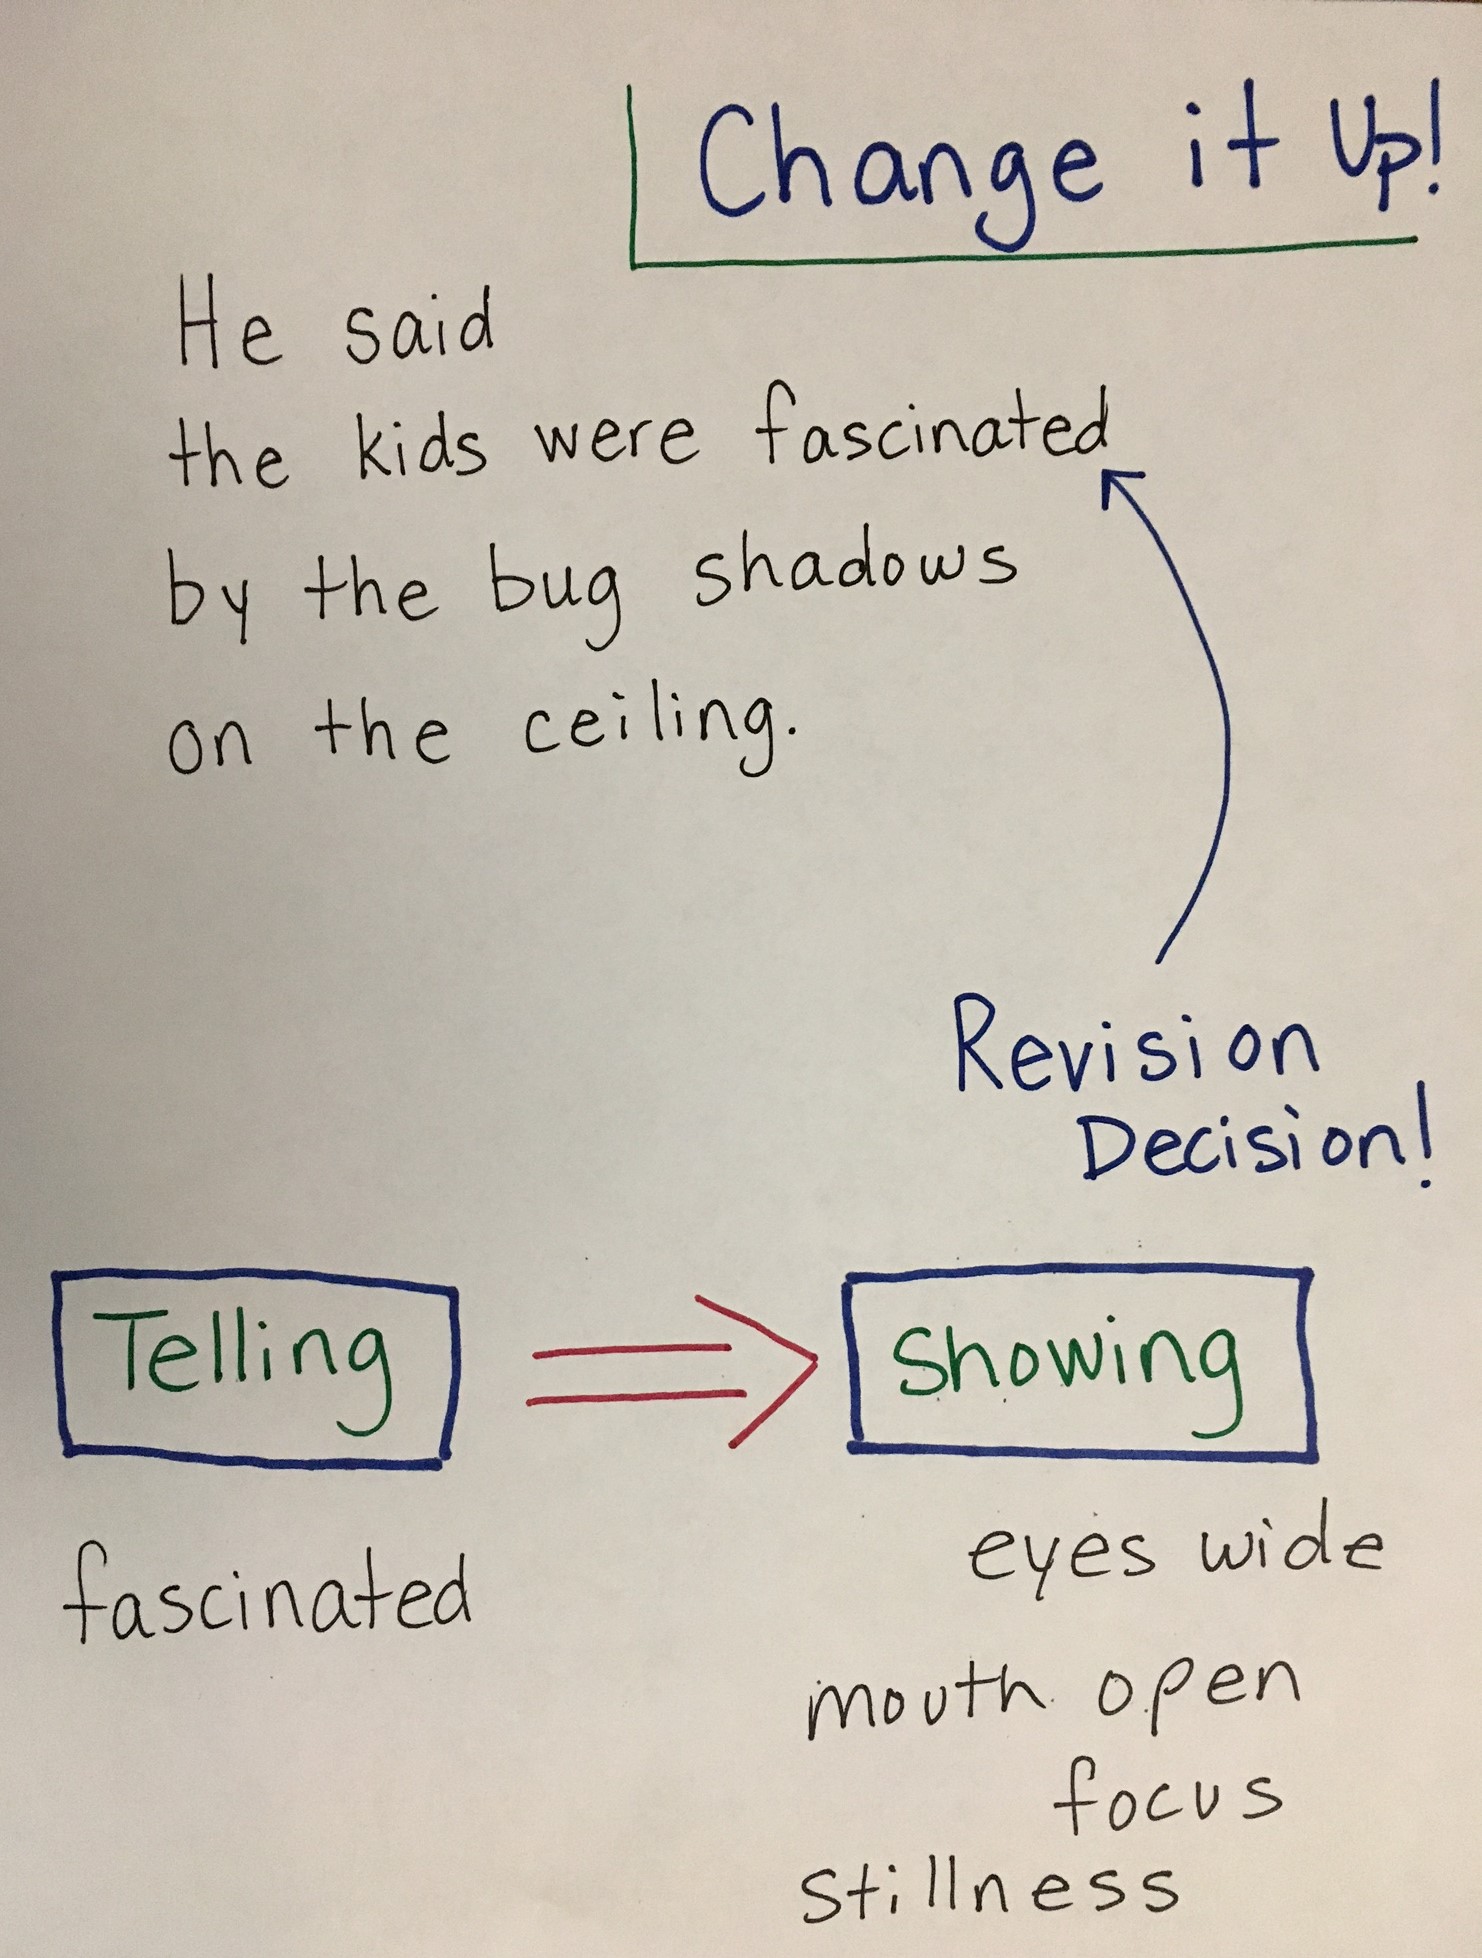 Change it Up!
He said
the kids were fascinated
by the bug shadows
on the ceiling.
Revision
Decision!
Telling
Showing
fascinated
eyes wide
mouth open
focus
stillness